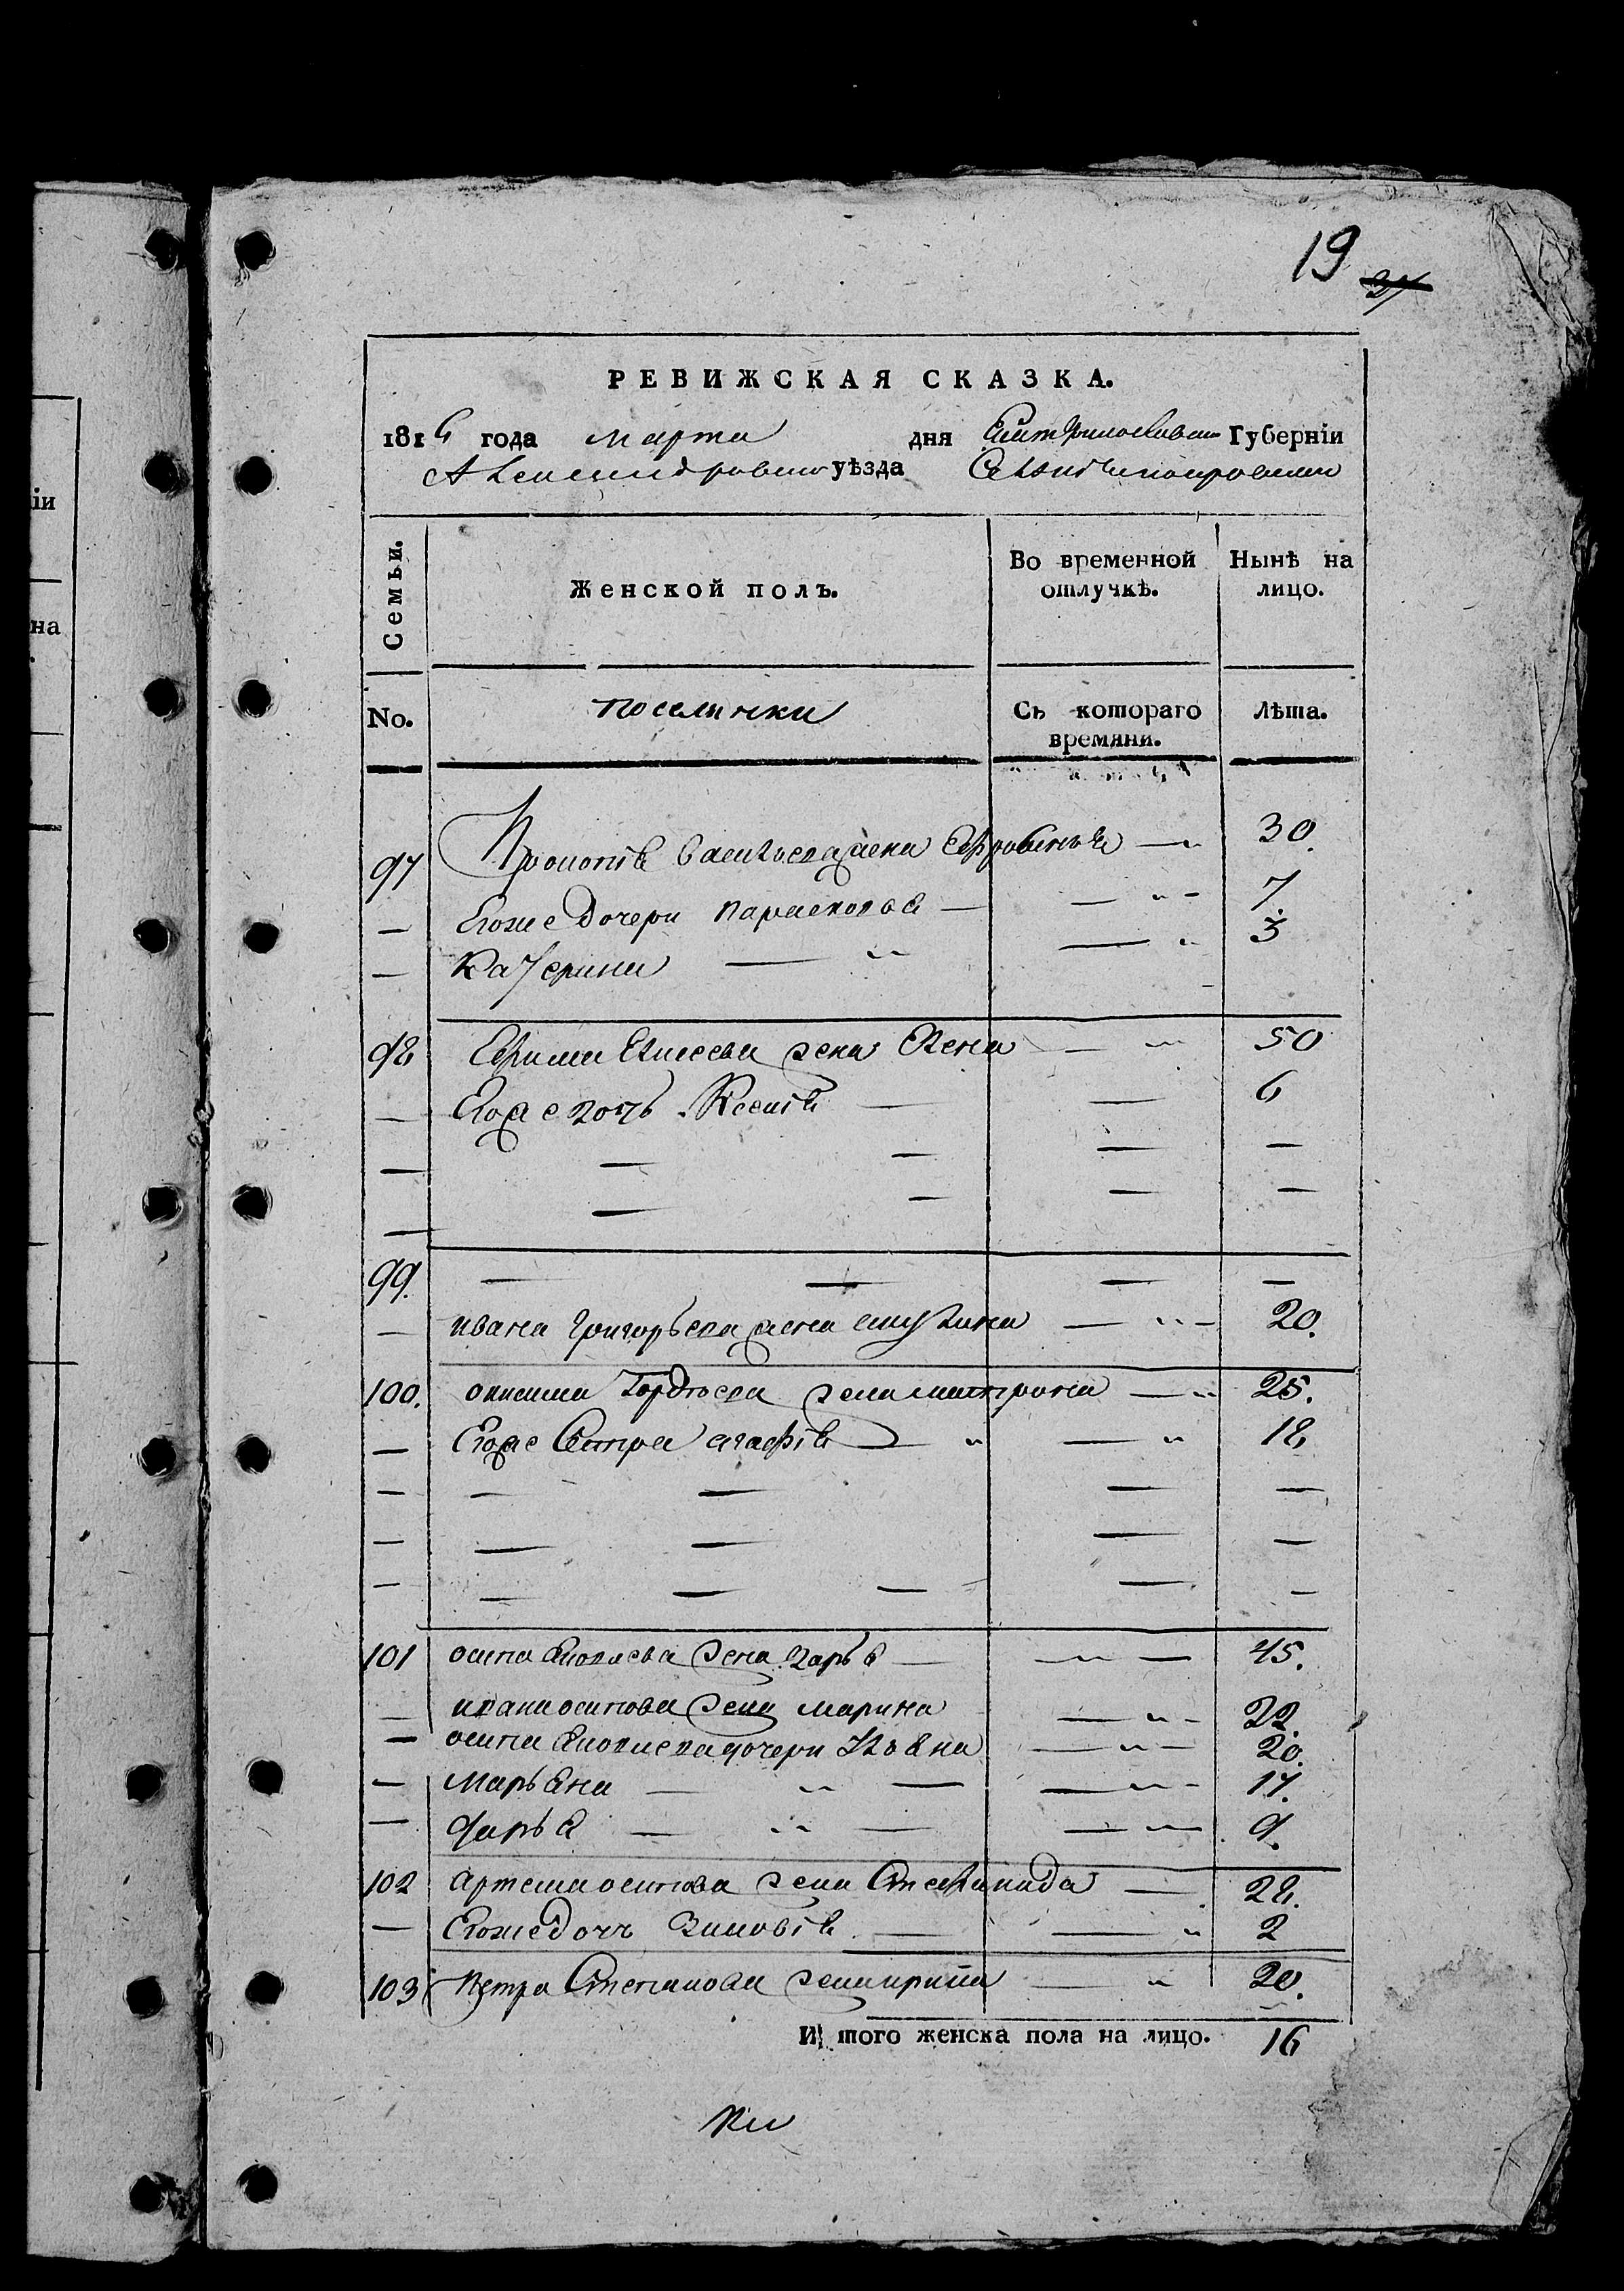 19 27
РЕВИЖСКАЯ СКАЗКА.
1816 года марта дня Екатеринославской Губерніи
Александровского уѣзда
Семьи.
Женской полъ.
Во временной отлучкѣ.
Нынѣ на лицо.
No.
поселянки
Съ котораго времяни.
Лѣта.
97 Прокопія Васильева жена Евросинья — 30.
— Егоже дочери парасковья — — 7.
— Катерина — — 3
98 Ефима Елисеева жена Елена — 50
— Егоже дочь Ксенія — — 6
— — — — —
— — — — —
99. — — — —
— ивана Григорьева жена акулина — 20.
100. онисима Гордѣева жена матрона — 25.
— Егоже Сестра агафія — — 18
— — — — —
— — — — —
— — — — — —
101 осипа жена дарья — — 45.
— ивана осипова жена марина — 22.
— осипа дочери — 20.
— Марьяна — — — 17.
— дарья — — — 9.
102 артема осипова жена Степанида — 28.
— Егоже дочь Зиновія — — 2
103 петра Степанова жена ирина — 20.
И того женска пола на лицо. 16